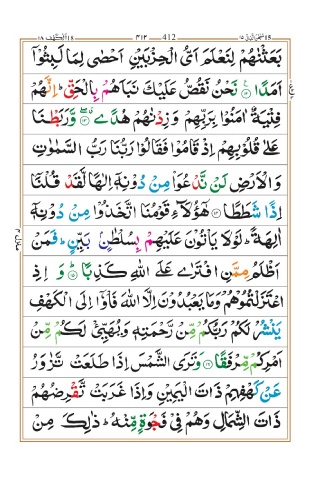 سبحٰن الذی ۱۵ 412 ۴۱۲ الکھف ۱۸
بَعَثْنٰهُمْ لِنَعْلَمَ اَیُّ الْحِزْبَیْنِ اَحْصٰی لِمَا لَبِثُوْۤا
اَمَدًا ۠ ﴿۱۲﴾ نَحْنُ نَقُصُّ عَلَیْكَ نَبَاَهُمْ بِالْحَقِّ ؕ اِنَّهُمْ
فِتْیَةٌ اٰمَنُوْا بِرَبِّهِمْ وَ زِدْنٰهُمْ هُدًی ۖ ﴿۱۳﴾ وَّ رَبَطْنَا
عَلٰی قُلُوْبِهِمْ اِذْ قَامُوْا فَقَالُوْا رَبُّنَا رَبُّ السَّمٰوٰتِ
وَ الْاَرْضِ لَنْ نَّدْعُوَا۠ مِنْ دُوْنِهٖۤ اِلٰهًا لَّقَدْ قُلْنَاۤ
اِذًا شَطَطًا ﴿۱۴﴾ هٰۤؤُلَآءِ قَوْمُنَا اتَّخَذُوْا مِنْ دُوْنِهٖۤ
اٰلِهَةً ؕ لَوْ لَا یَاْتُوْنَ عَلَیْهِمْ بِسُلْطٰنٍۭ بَیِّنٍ ؕ فَمَنْ
اَظْلَمُ مِمَّنِ افْتَرٰی عَلَی اللّٰهِ كَذِبًا ؕ ﴿۱۵﴾ وَ اِذِ
اعْتَزَلْتُمُوْهُمْ وَ مَا یَعْبُدُوْنَ اِلَّا اللّٰهَ فَاْوٗۤا اِلَی الْكَهْفِ
یَنْشُرْ لَكُمْ رَبُّكُمْ مِّنْ رَّحْمَتِهٖ وَ یُهَیِّئْ لَكُمْ مِّنْ
اَمْرِكُمْ مِّرْفَقًا ﴿۱۶﴾ وَ تَرَی الشَّمْسَ اِذَا طَلَعَتْ تَّزٰوَرُ
عَنْ كَهْفِهِمْ ذَاتَ الْیَمِیْنِ وَ اِذَا غَرَبَتْ تَّقْرِضُهُمْ
ذَاتَ الشِّمَالِ وَ هُمْ فِیْ فَجْوَةٍ مِّنْهُ ؕ ذٰلِكَ مِنْ